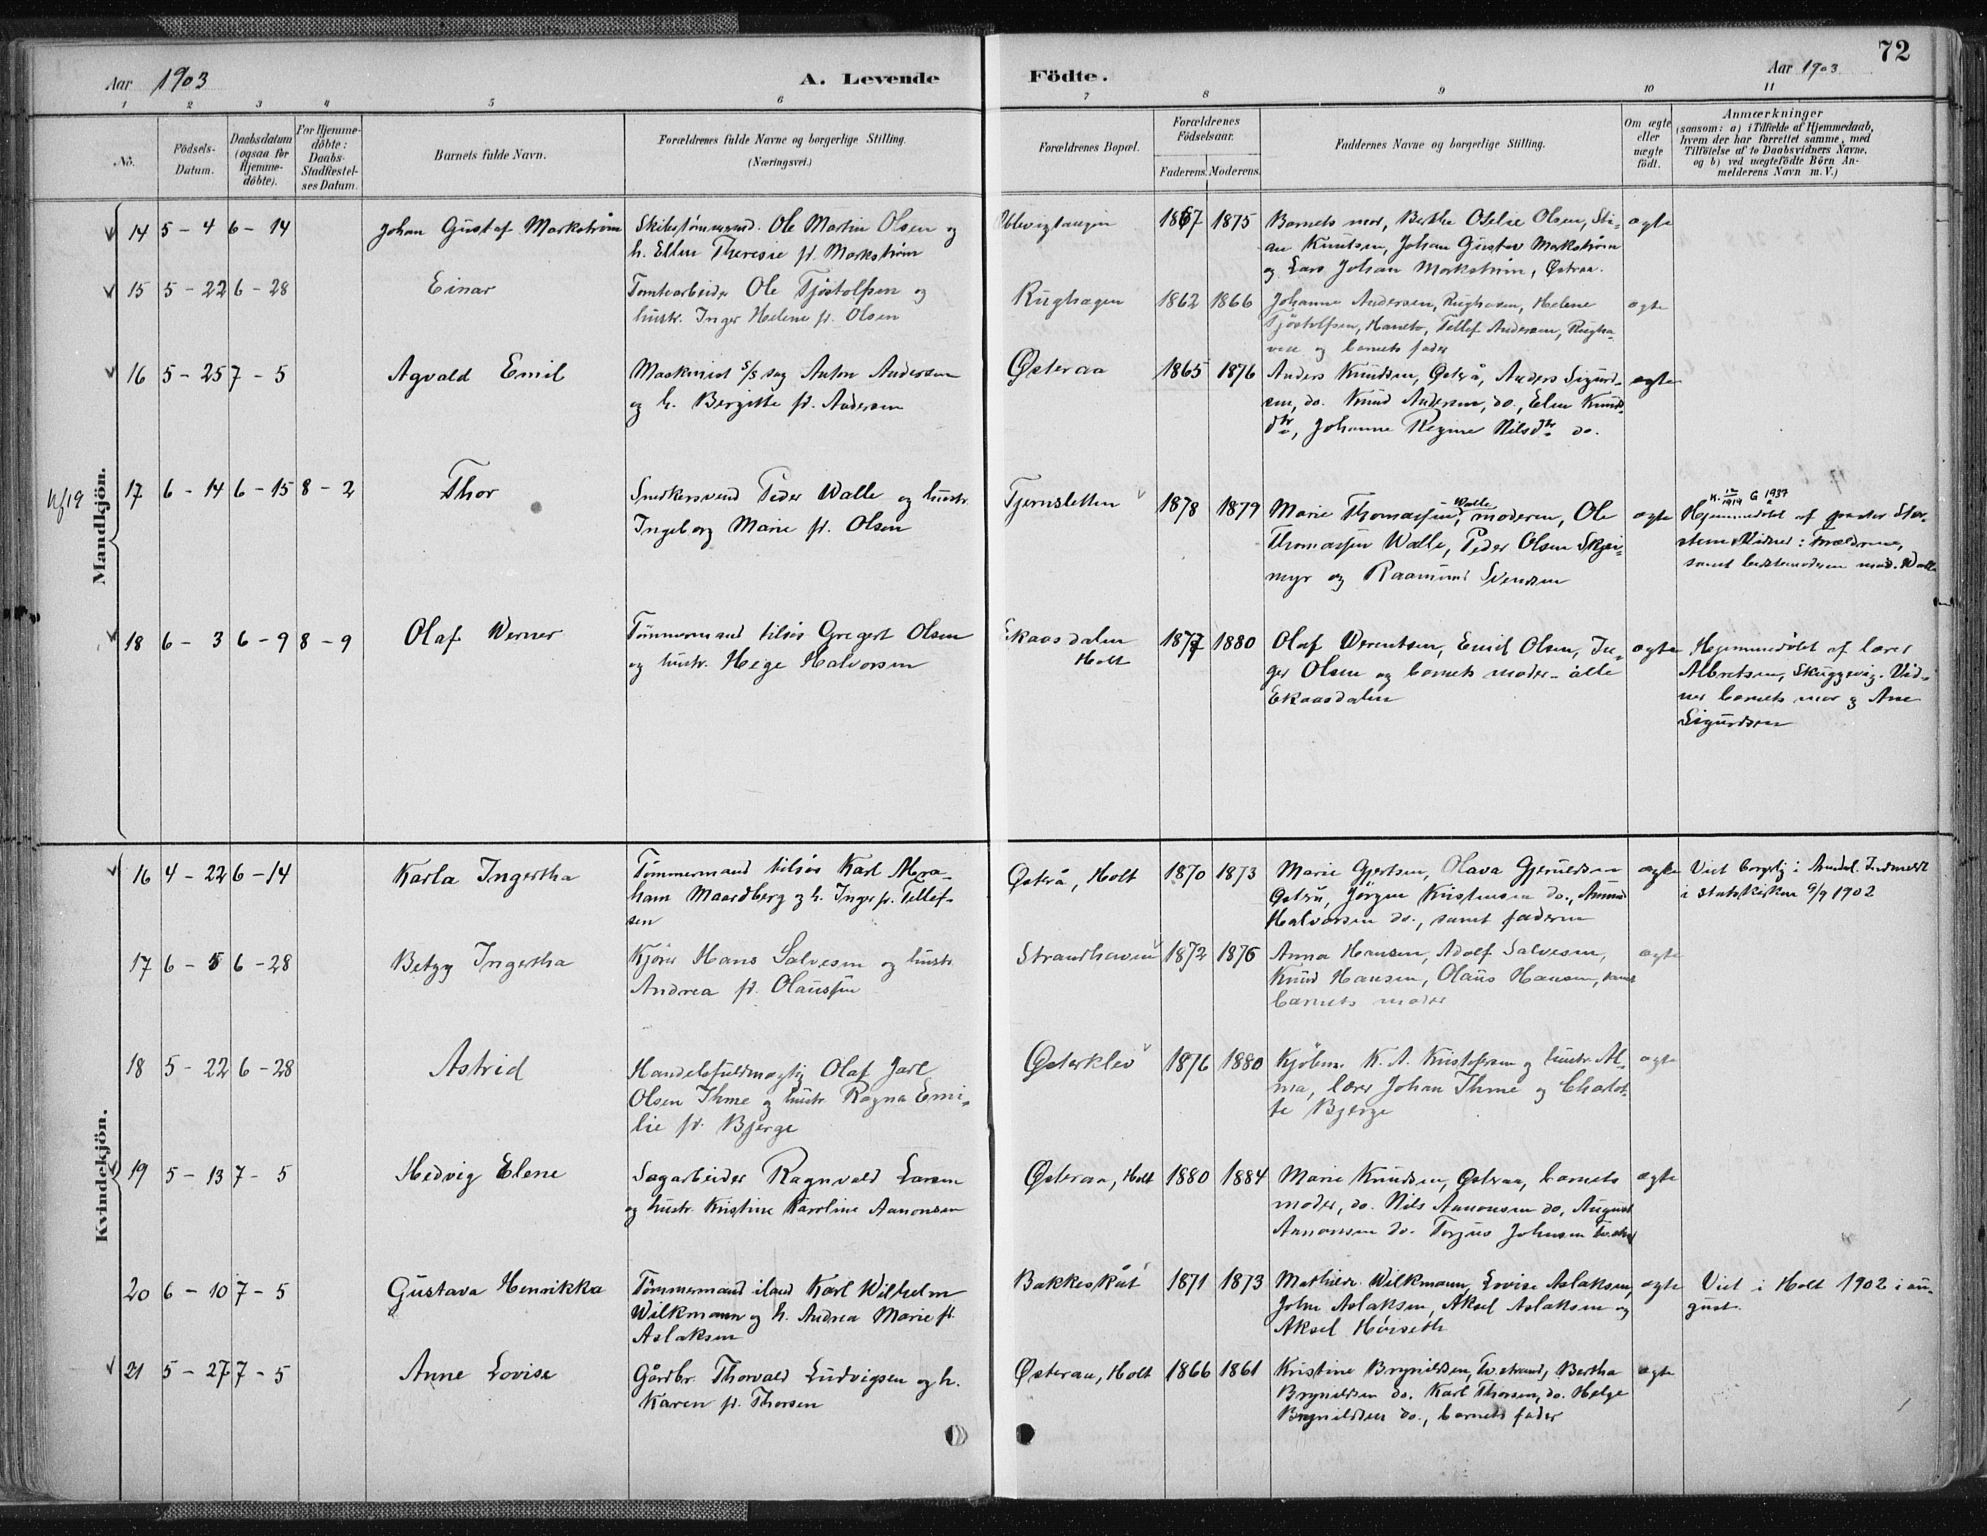 72
Aar 1903
A. Levende Födte.
Aar 1903
1 2 3 4 5 6 7 8 9 10 11
No.
Födsels-Datum.
Daabsdatum (ogsaa for Hjemmedöbte).
For Hjemmedöbte: Daabs-Stadfæstelses Datum.
Barnets fulde Navn.
Forældrenes fulde Navne og borgerlige Stilling.
(Næringsvei.)
Forældrenes Bopæl.
Forældrenes Födselsaar.
Faderens. Moderens.
Faddernes Navne og borgerlige Stilling.
Om ægte eller uægte födt.
Anmærkninger
(saasom: a) i Tilfælde af Hjemmedaab,
hvem der har forrettet samme, med
Tilföielse af to Daabsvidners Navne,
og b) ved uægtefödte Börn Anmelderens Navn m. V.)
Mandkjön.
14 5 - 4 6 - 14 Johan Gustaf Markström
Skibstømmermd. Ole Martin Olsen og
h. Ellen Theresie f. Markstrøm
1867 1875
Barnets mor, Berthe Otelie Olsen, Sti-
an Knutsen, Johan Gustav Markstrøm
og Lars Johan Markstrøm, Østraa.
ægte
15 5 - 22 6 - 28 Einar
Tomtearbeider Ole Tjøstolfsen og
hustr. Inger Helene f. Olsen
Rughagen 1862 1866
Johanne Andersen, Rughaven, Helene
Tjøstolfsen, Tellef Andersen, Rugha-
ven og barnets fader
ægte
16 5 - 25 7 - 5 Agvald Emil
Maskinist s/s sag Anton Andersen
og h. Bergitte f. Andersen
Østeraa 1865 1876
Anders Knudsen, Østerå, Anders Sigurd-
sen, do. Knud Andersen, do., Elen Knuds-
dtr, Johanne Regine Nilsdtr do.
ægte
17 6 - 14 6 - 15 8 - 2 Thor
Snedkersvend Peder Walle og hustr.
Ingeborg Marie f. Olsen
Tjernsletten 1878 1879
Marie Thomassen Walle, moderen, Ole
Thomassen Walle, Peder Olsen Skjei-
myr og Raamund Svendsen
ægte
Hjemmedøbt af
Vidner: Forældrene,
samt bedstemoderen mad. Walle
18 6 - 3 6 - 9 8 - 9 Olaf Werner
Tømmermand tilsøs Gregert Olsen
og hustr. Hege Halvorsen
Ekaasdalen
Holt
1877 1880
Olaf Werentsen, Emil Olsen, In-
ger Olsen og barnets moder - alle
Ekaasdalen
ægte
Hjemmedøbt af lærer
Albretsen, Skuggevig. Vid-
ner barnets mor og Ane
Sigurdsen
Kvindekjön.
16 4 - 22 6 - 14 Karla Ingertha
Tømmermand tilsøs Karl Abra-
ham Maardberg og h. Inger f. Tellef-
sen
Østrå, Holt 1870 1873
Marie Gjertsen, Olava Gjeruldsen
Østrå, Jörgen Kristensen do., Amund
Halvorsen do., samt faderen
ægte
Viet borgerlig i Arendal. Indmeldt
i statskirken 9/9 1902
17 6 - 5 6 - 28 Betzy Ingertha
Kjører Hans Salvesen og hustr.
Andrea f. Olaussen
Strandhaven 1872 1876
Anna Hansen, Adolf Salvesen,
Knud Hansen, Olaus Hansen, samt
barnets moder
ægte
18 5 - 22 6 - 28 Astrid
Handelsfuldmægtig Olaf Jarl
Olsen Thme og hustr. Ragna Emi-
lie f. Bjerge
Østerklev 1876 1880
Kjøbm. K. A. Kristofersen og hustr. Al-
ma, lærer Johan Thme og Charlot-
te Bjerge
ægte
19 5 - 13 7 - 5 Hedvig Elene
Sagarbeider Ragnvald Larsen
og hustr. Kristine Karoline Aanonsen
Østeraa, Holt 1880 1884
Marie Knudsen, Østeraa, barnets
moder, do. Nils Aanonsen do, August
Aanonsen do. Torjus Johnsen
ægte
20 6 - 10 7 - 5 Gustava Henrikka
Tømmermand iland Karl Wilhelm
Wilkmann og h. Andrea Marie f.
Aslaksen
Bakkeskåt 1871 1873
Mathilde Wilkmann, Lovise Aslaksen,
John Aslaksen, Aksel Aslaksen og
Aksel Høiseth
ægte
Viet i Holt 1902 i au-
gust
21 5 - 27 7 - 5 Anne Lovise
Gårdbr. Thorvald Ludvigsen og h.
Karen f. Thorsen
Østeraa, Holt 1866 1861
Kristine Brynildsen, Tvestrand, Bertha
Brynildsen do. Karl Thorsen, do. Helge
Brynildsen do., barnets fader
ægte